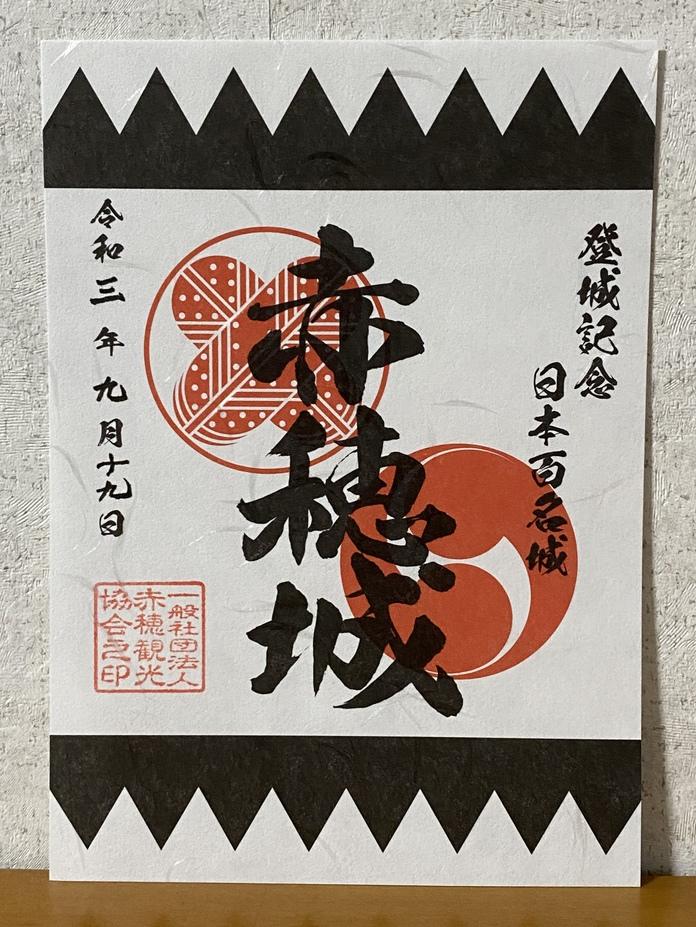 登城記念
日本百名城
赤穂城
令和三年九月十九日
一般社団法人
赤穂観光
協会之印